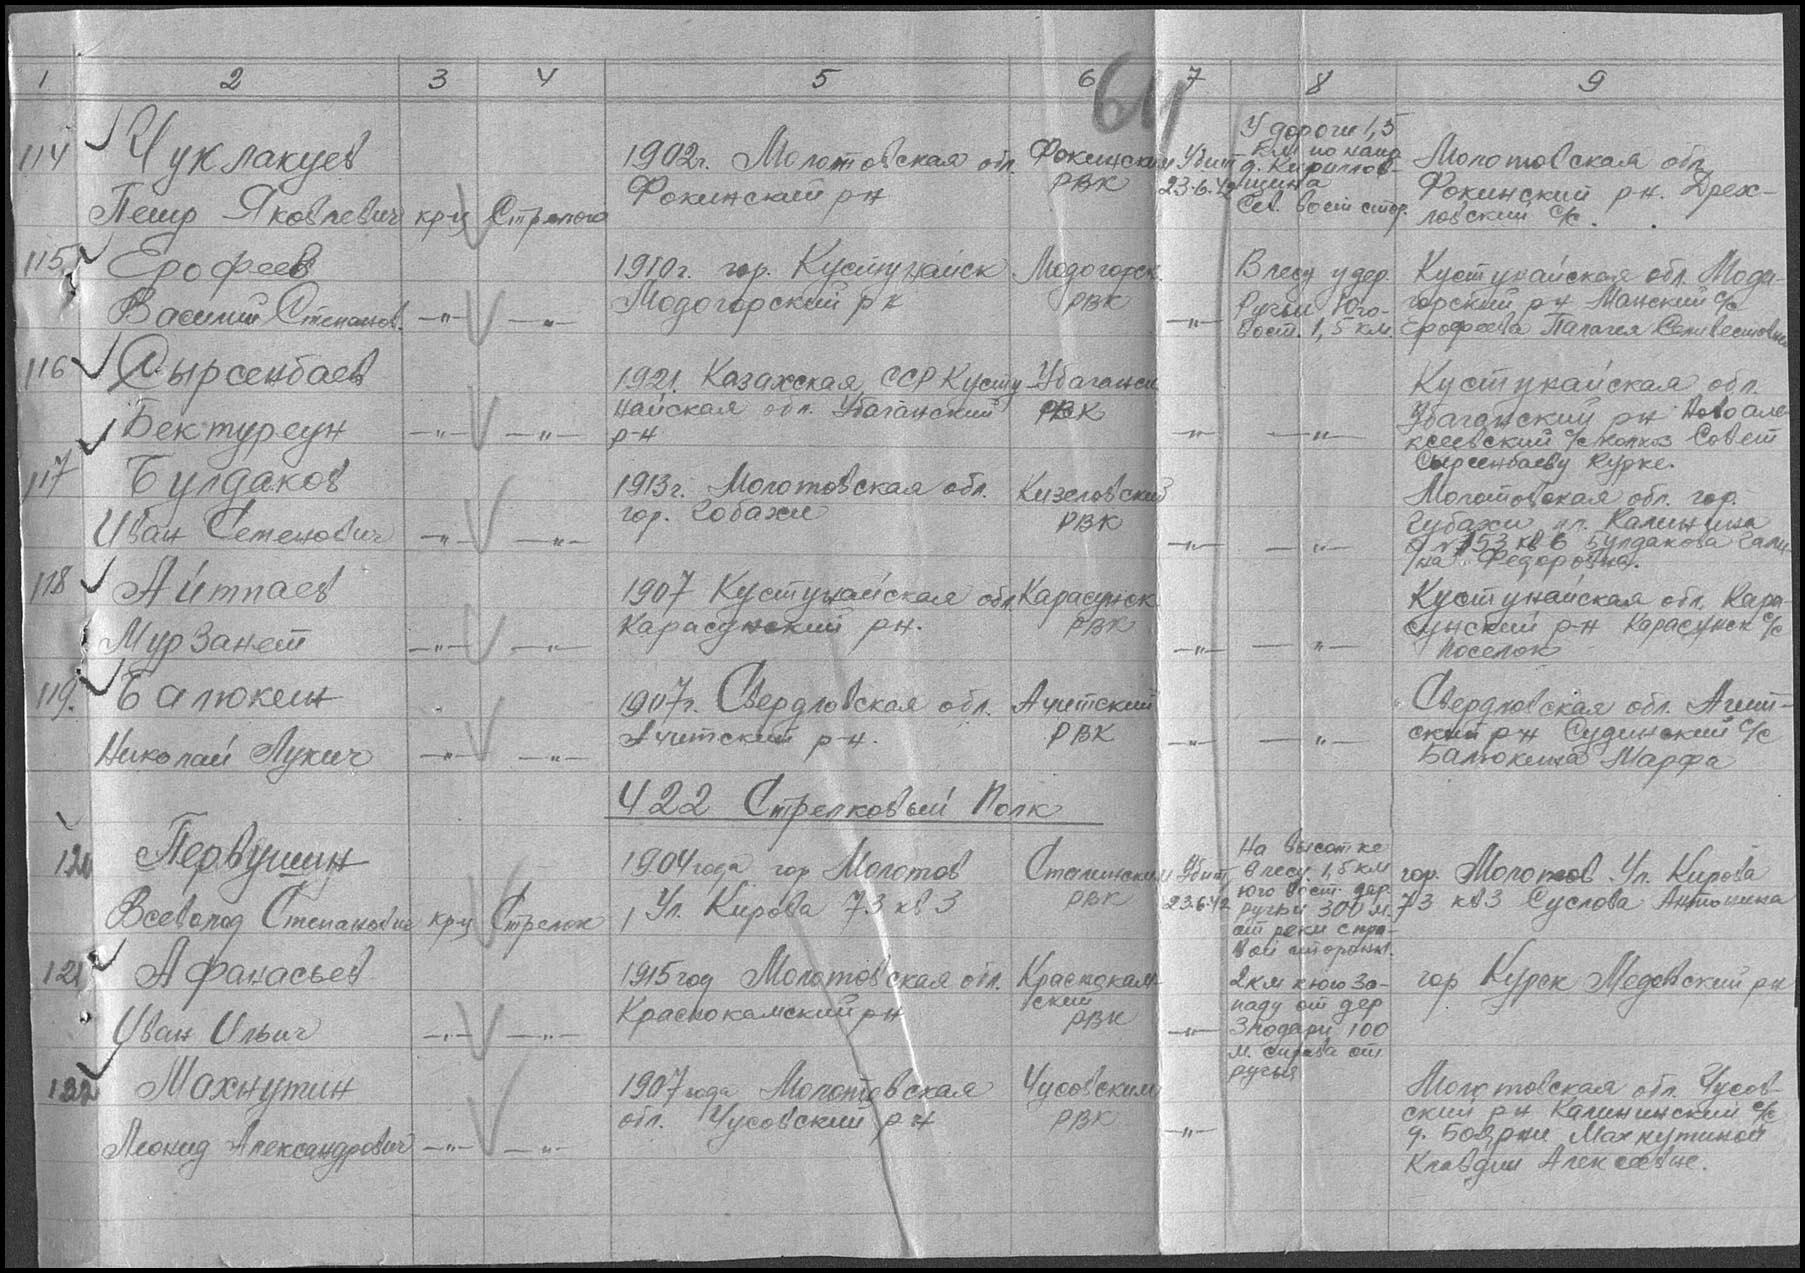 1 2 3 4 5 6 7 8 9
611
114 Чуклакуев
Петр Яковлевич кр-ц Стрелок
1902г. Молотовская обл.
Фокинский р-н
Фокинский
РВК
Убит
23.6.42
У дороги 1,5
км по напр
д. Кириллов-
щина
Сев. вост стор.
Молотовская обл.
Фокинский р-н. Дрех-
ловский с/с.
115 Ерофеев
Василий Степанов. —"— —"—
1910г. гор. Кустунайск
Модогорский р-н
Модогорск
РВК
—"—
В лесу у дер.
Ручьи Юго-
вост. 1,5 км.
Кустунайская обл. Модо-
горский р-н Манский с/с
Ерофеева Палагея
116 Сырсенбаев
Бектурсун —"— —"—
1921. Казахская ССР Кусту
найская обл. Убаганский
р-н
Убаганск
РВК
—"— —"—
Кустунайская обл.
Убаганский р-н Новоале-
ксеевский с/с колхоз Совет
Сырсенбаеву Курке.
117 Булдаков
Иван Семенович —"— —"—
1913г. Молотовская обл.
гор. Гобахи
Кизеловский
РВК
—"— —"—
Молотовская обл. гор.
Губахи пл. Калинина
д №153 кв 6 Булдакова Гали-
на Федоровна.
118 Айтпаев
Мурзанет —"— —"—
1907 Кустунайская обл
Карасунский р-н.
Карасунск
РВК
—"— —"—
Кустунайская обл. Кара-
сунский р-н Карасунск с/с
поселок
119. Балюкин
Николай Лукич —"— —"—
1907г. Свердловская обл.
Ачитский р-н.
Ачитский
РВК
—"— —"—
Свердловская обл. Ачит-
ский р-н Судинский с/с
Балюкина Марфа
422 Стрелковый Полк
120 Первушин
Всеволод Степанович кр-ц Стрелок
1904 года гор Молотов
Ул. Кирова 73 кв 3
Сталинский
РВК
Убит
23.6.42
На высотке
в лесу 1,5 км
юго вост. дер.
Ручьи 300 м.
от реки с пра-
вой стороны.
гор. Молотов Ул. Кирова
73 кв 3 Суслова Антонина
121 Афанасьев
Иван Ильич —"— —"—
1915 год Молотовская обл.
Краснокамский р-н
Краснокам-
ский
РВК
—"—
2 км к юго за-
паду от дер
100
м. справа от
ручья
гор Курск Медовский р-н
122 Махнутин
Леонид Александрович —"— —"—
1907 года Молотовская
обл. Чусовский р-н
Чусовский
РВК
—"—
Молотовская обл. Чусов-
ский р-н Калининский с/с
д. Боярки Махнутиной
Клавдии Алексеевне.